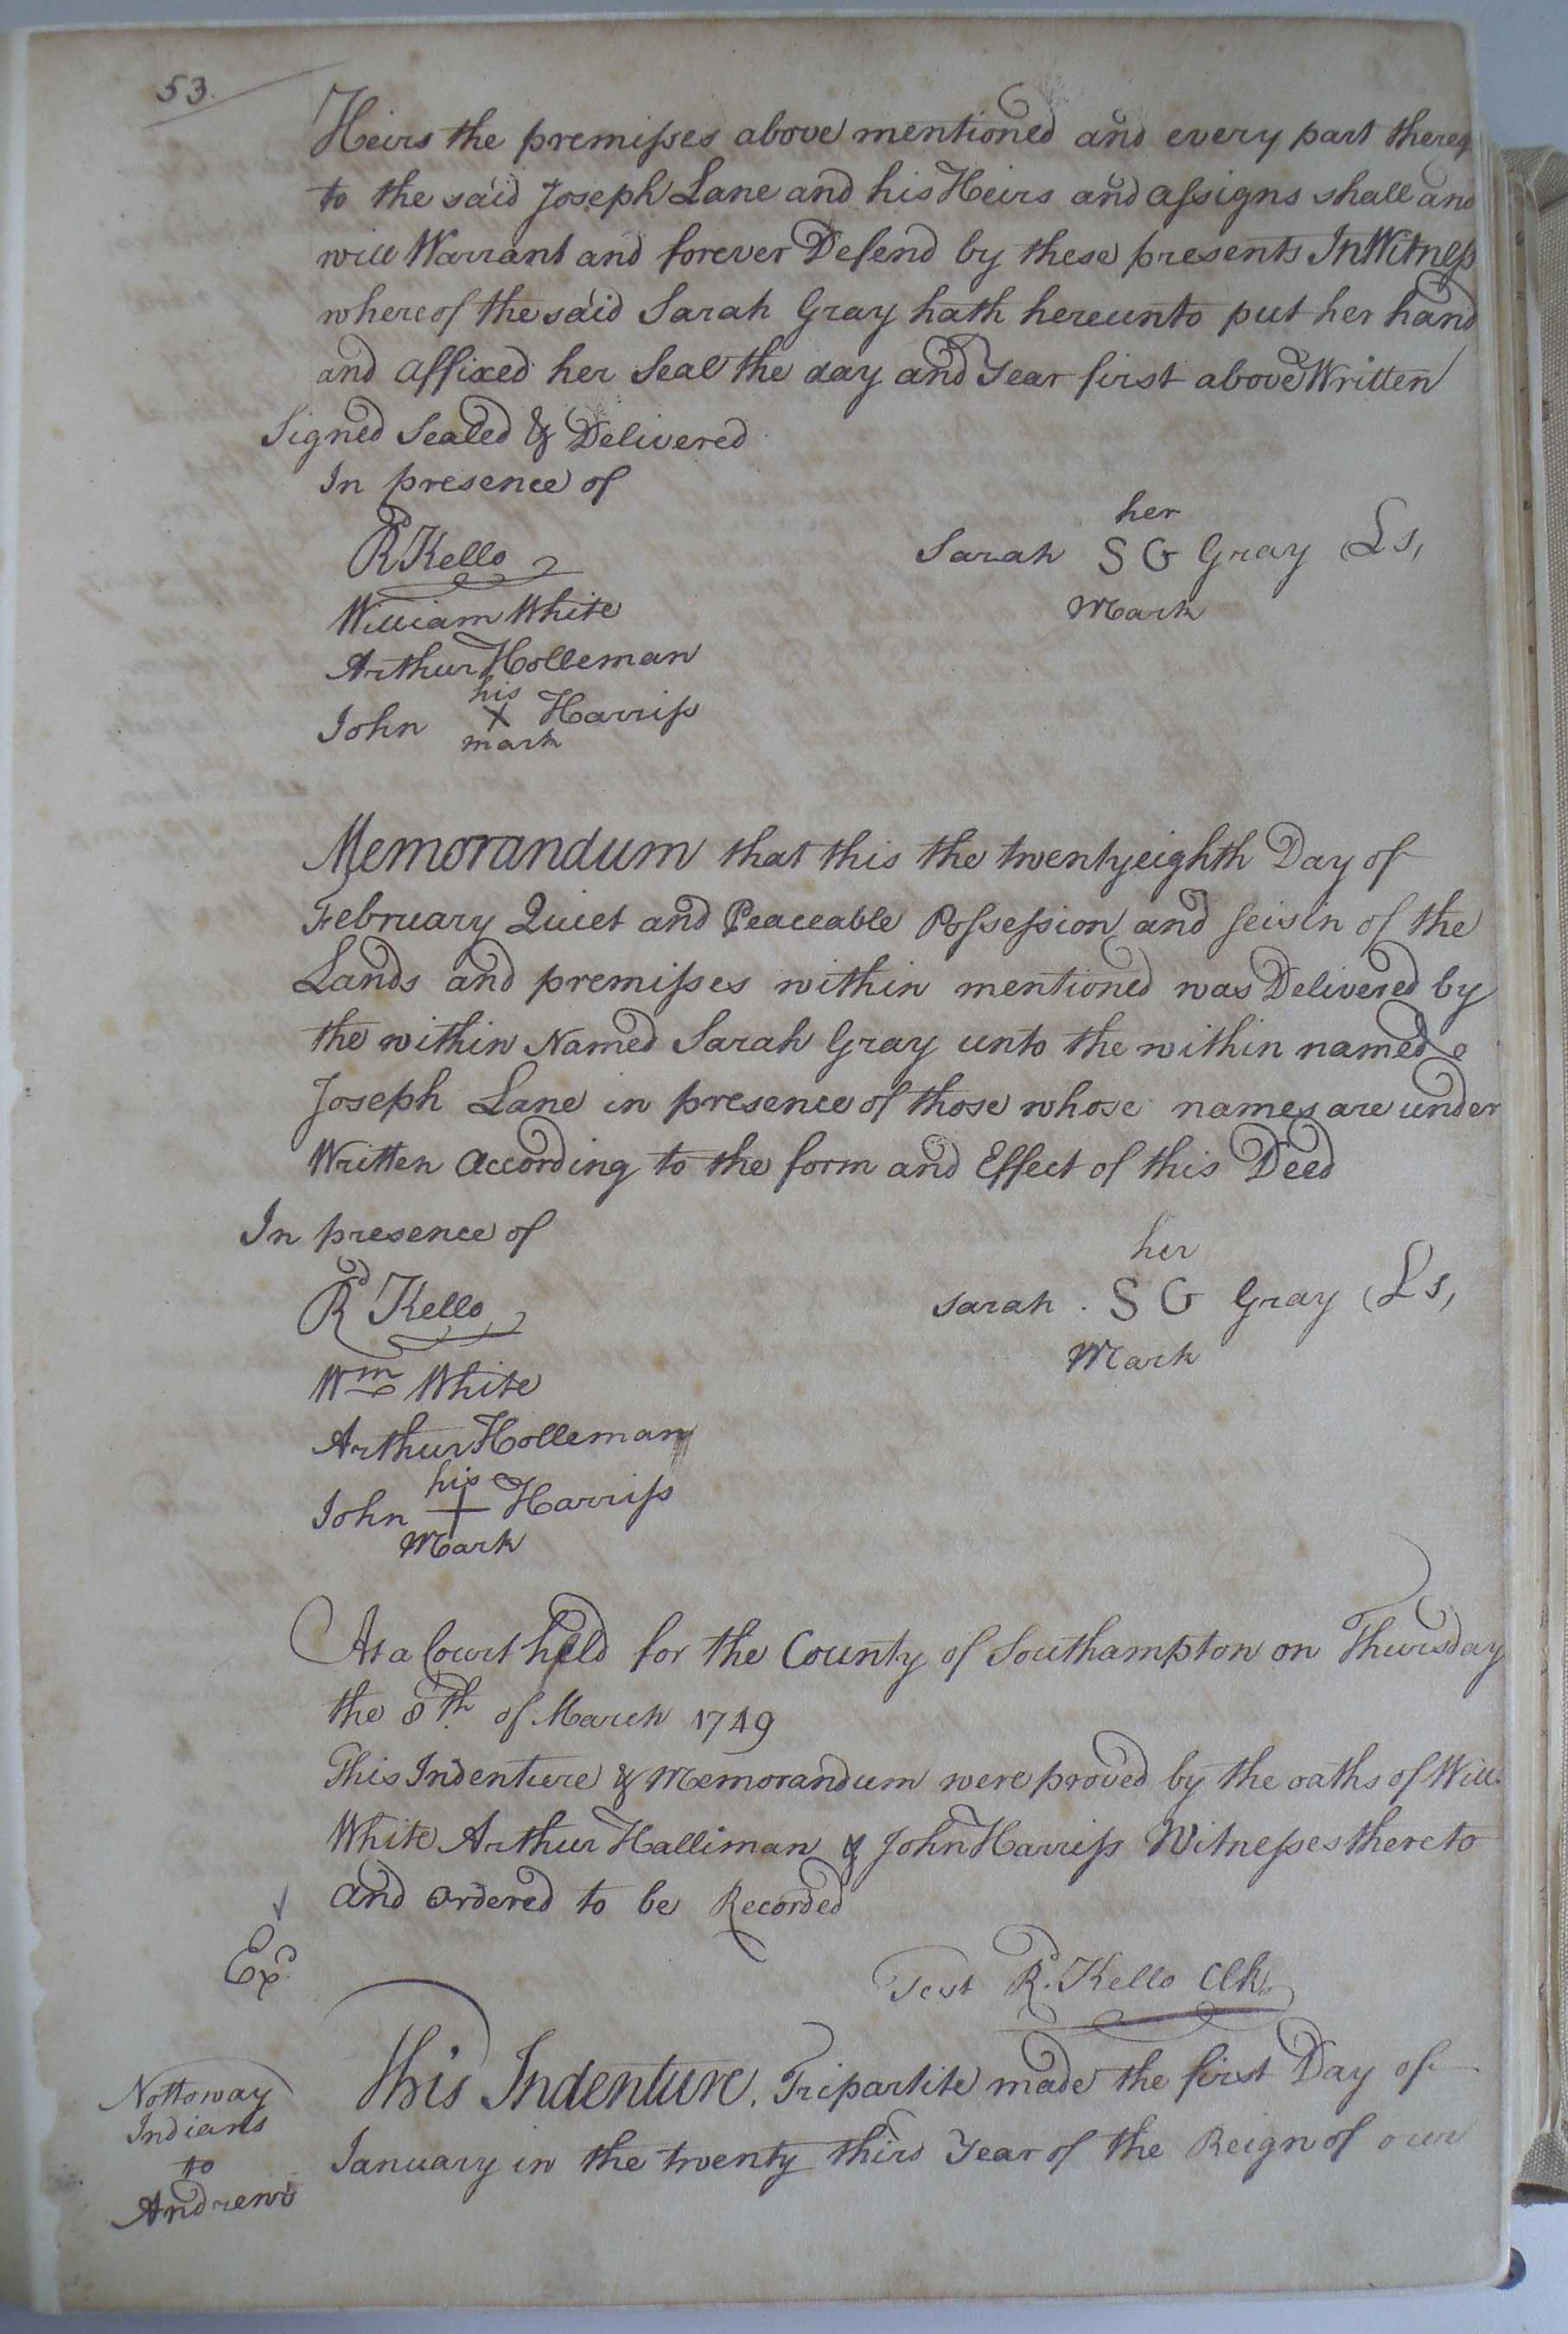 53.
Heirs the premisses above mentioned and every part thereof
to the said Joseph Lane and his Heirs and assigns shall and
will Warrant and forever Defend by these presents In Witness
whereof the said Sarah Gray hath hereunto put her hand
and affixed her Seal the day and Year first above Written
Signed Sealed & Delivered
In presence of
her
Rd Kello
Sarah S G Gray Ls,
Mark
William White
Arthur Holleman
his
John X Harriss
mark
Memorandum that this the twentyeighth Day of
February Quiet and Peaceable Possession and seisin of the
Lands and premisses within mentioned was Delivered by
the within Named Sarah Gray unto the within named
Joseph Lane in presence of those whose names are under
Written according to the form and Effect of this Deed
In presence of
her
Rd Kello
Sarah S G Gray (Ls,
Mark
Wm White
Arthur Holleman
his
John + Harriss
Mark
At a Court held for the County of Southampton on Thursday
the 8th of March 1749
This Indenture & Memorandum were proved by the oaths of Will:
White Arthur Halliman & John Harriss Witnesses thereto
and ordered to be Recorded
Exd
Test Rd Kello Clk.
This Indenture. Tripartite made the first Day of
January in the twenty third Year of the Reign of our
Nottoway
Indians
to
Andrews